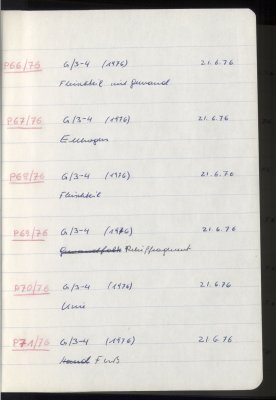 P66/76 G/3-4 (1976) 21.6.76
Fleischteil mit Gewand
P67/76 G/3-4 (1976) 21.6.76
Ellbogen
P68/76 G/3-4 (1976) 21.6.76
Fleischteil
P69/76 G/3-4 (1976) 21.6.76
Gewandfalte Relieffragment
P70/76 G/3-4 (1976) 21.6.76
Knie
P71/76 G/3-4 (1976) 21.6.76
Hand Fuß